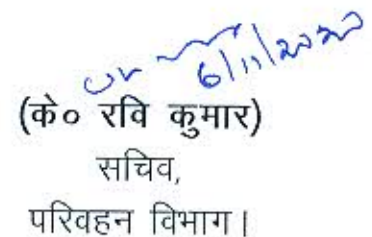 6/11/2020
(के० रवि कुमार)
सचिव,
परिवहन विभाग।